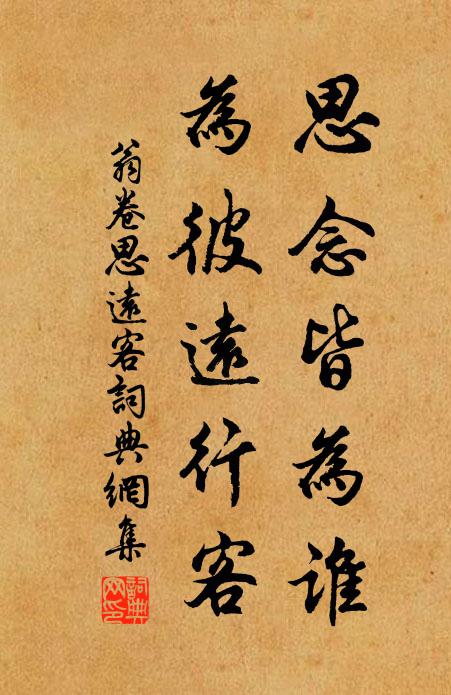 思念皆為誰
為彼遠行客
翁卷思遠客詞典網集
詞典網印